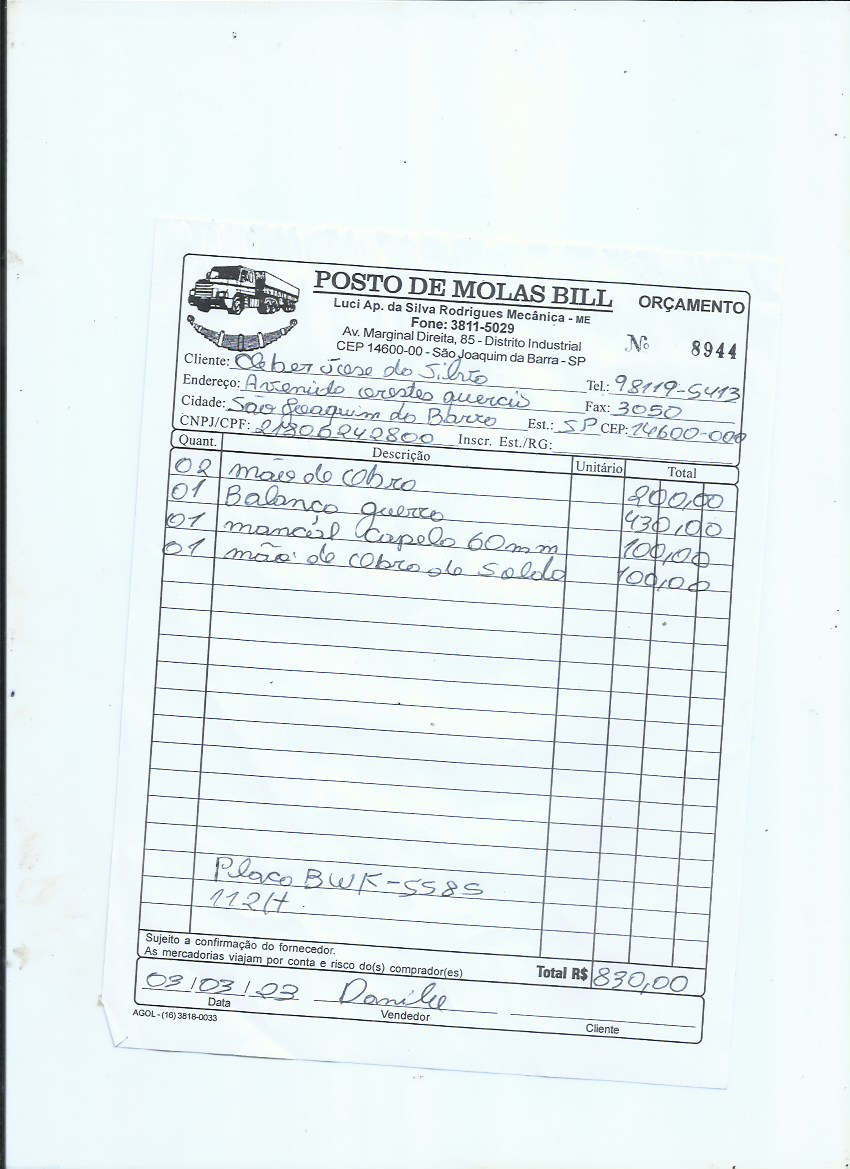 POSTO DE MOLAS BILL
ORÇAMENTO
Luci Ap. da Silva Rodrigues Mecânica - ME
Fone: 3811-5029
Av. Marginal Direita, 85 - Distrito Industrial
CEP 14600-00 - São Joaquim da Barra - SP
Nº 8944
Cliente: Cleber Jose da Silva Tel.: 98119-5413
Endereço: Avenida orestes quercia Fax: 3050
Cidade: São Joaquim da Barra Est.: SP CEP: 14600-000
CNPJ/CPF: 21806242800 Inscr. Est./RG:
Quant. Descrição Unitário Total
02 mão de cobra 200,00
01 Balança guerra 430,00
01 mancal capela 60mm 100,00
01 mão de cobra de solda 100,00
Placa BWK-5585
112H
Sujeito a confirmação do fornecedor.
As mercadorias viajam por conta e risco do(s) comprador(es)
Total R$ 830,00
03/03/23
Data Vendedor Cliente
AGOL - (16) 3818-0033